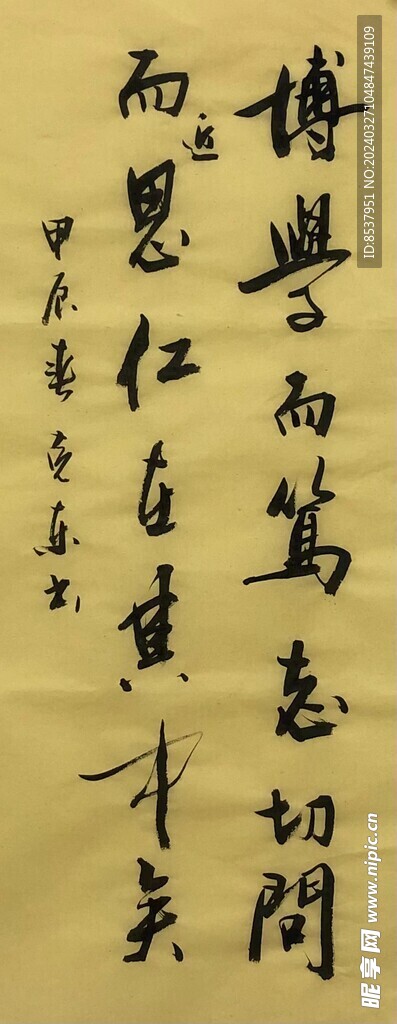 博學而篤志切問
而近思仁在其中矣
甲辰春克東书
ID:8537951 NO:20240327104847439109
昵享网 www.nipic.cn